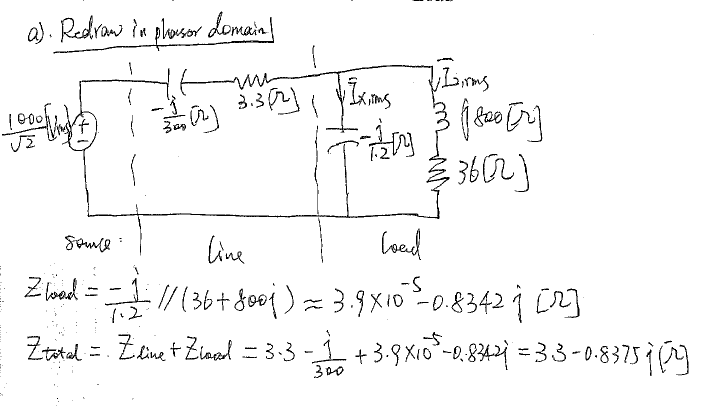 a). Redraw in phasor domain
1000/√2 [Vrms]
+
-
-j/300 [Ω]
3.3 [Ω]
Ix,rms
-j/1.2 [Ω]
I2,rms
j800 [Ω]
36 [Ω]
source:
line
load
Zload = -j/1.2 // (36+800j) ≈ 3.9×10^-5 -0.8342j [Ω]
Ztotal = Zline + Zload = 3.3 - j/300 + 3.9×10^-5 -0.8342j = 3.3 -0.8375j [Ω]